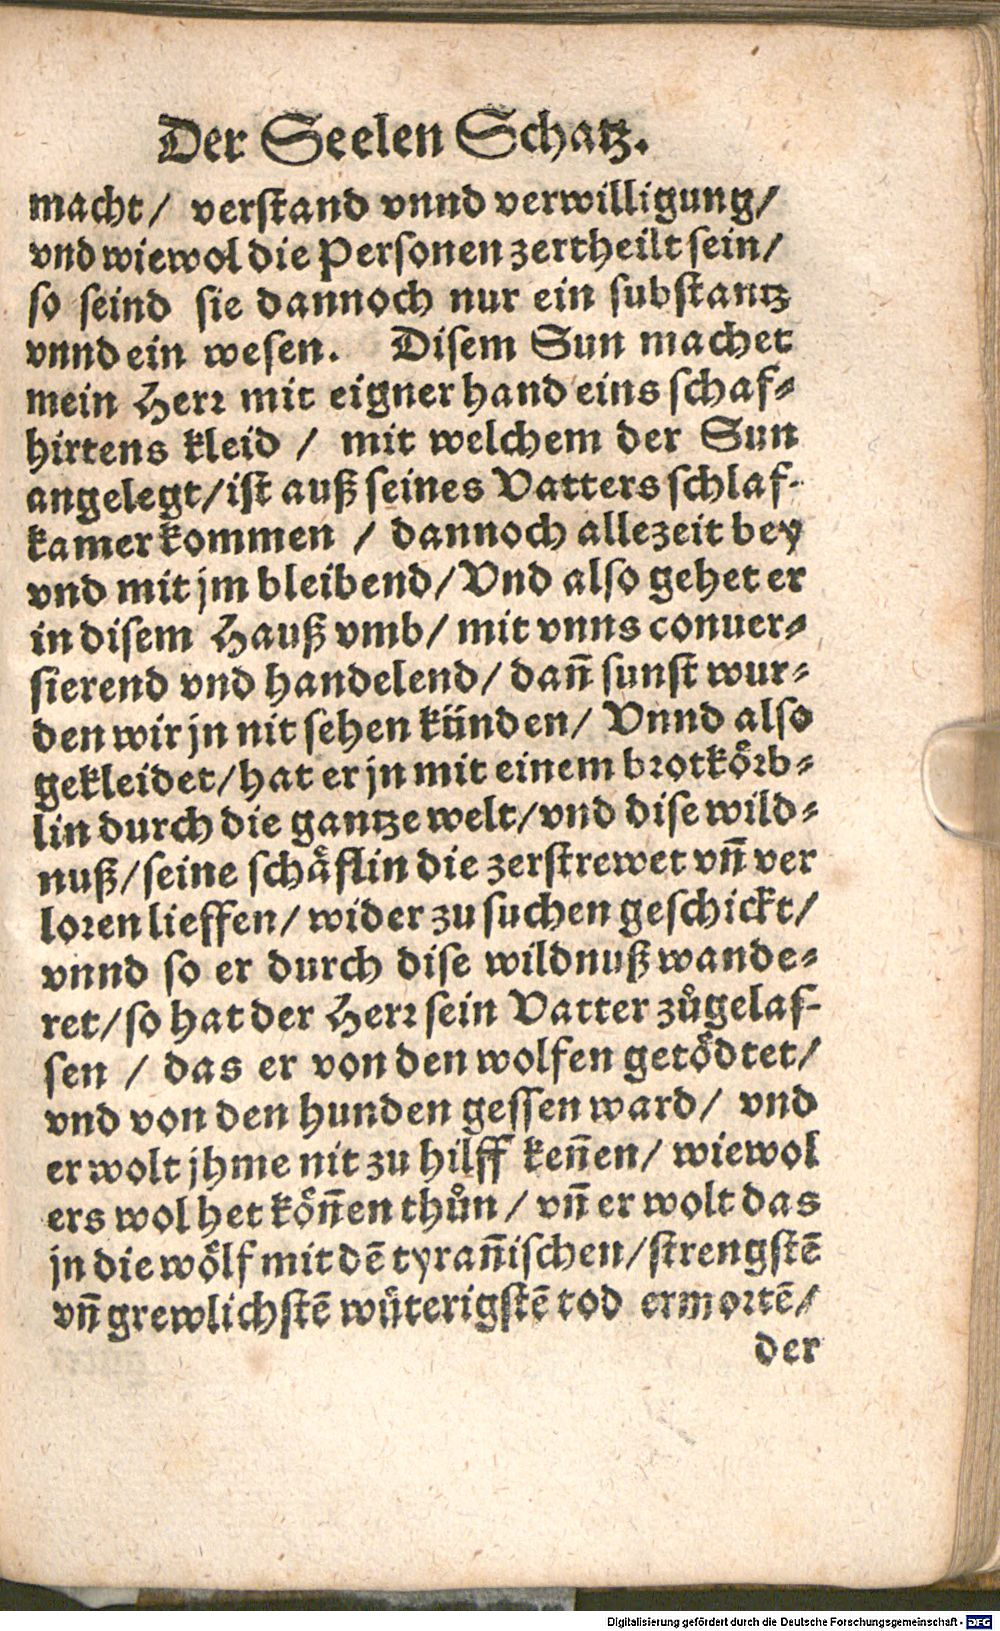 Der Seelen Schatz.
macht/ verstand vnnd verwilligung/
vnd wiewol die Personen zertheilt sein/
so seind sie dannoch nur ein substantz
vnnd ein wesen. Disem Sun machet
mein Herr mit eigner hand eins schaf⸗
hirtens kleid / mit welchem der Sun
angelegt/ist auß seines Vatters schlaf⸗
kamer kommen / dannoch allezeit bey
vnd mit jm bleibend/Vnd also gehet er
in disem Hauß vmb/ mit vnns conuer⸗
sierend vnd handelend/ dañ sunst wur⸗
den wir jn nit sehen künden/ Vnnd also
gekleidet/hat er jn mit einem brotkoͤrb⸗
lin durch die gantze welt/vnd dise wild⸗
nuß/seine schaͤflin die zerstrewet vñ ver
loren lieffen/wider zu suchen geschickt/
vnnd so er durch dise wildnuß wande⸗
ret/so hat der Herr sein Vatter zuͦgelas⸗
sen / das er von den wolfen getoͤdtet/
vnd von den hunden gessen ward/ vnd
er wolt jhme nit zu hilff keñen/ wiewol
ers wol het koͤñen thuͦn/ vñ er wolt das
jn die woͤlf mit dẽ tyrañischen/strengstẽ
vñ grewlichstẽ wuͤterigstẽ tod ermortẽ/
der
Digitalisierung gefördert durch die Deutsche Forschungsgemeinschaft - DFG